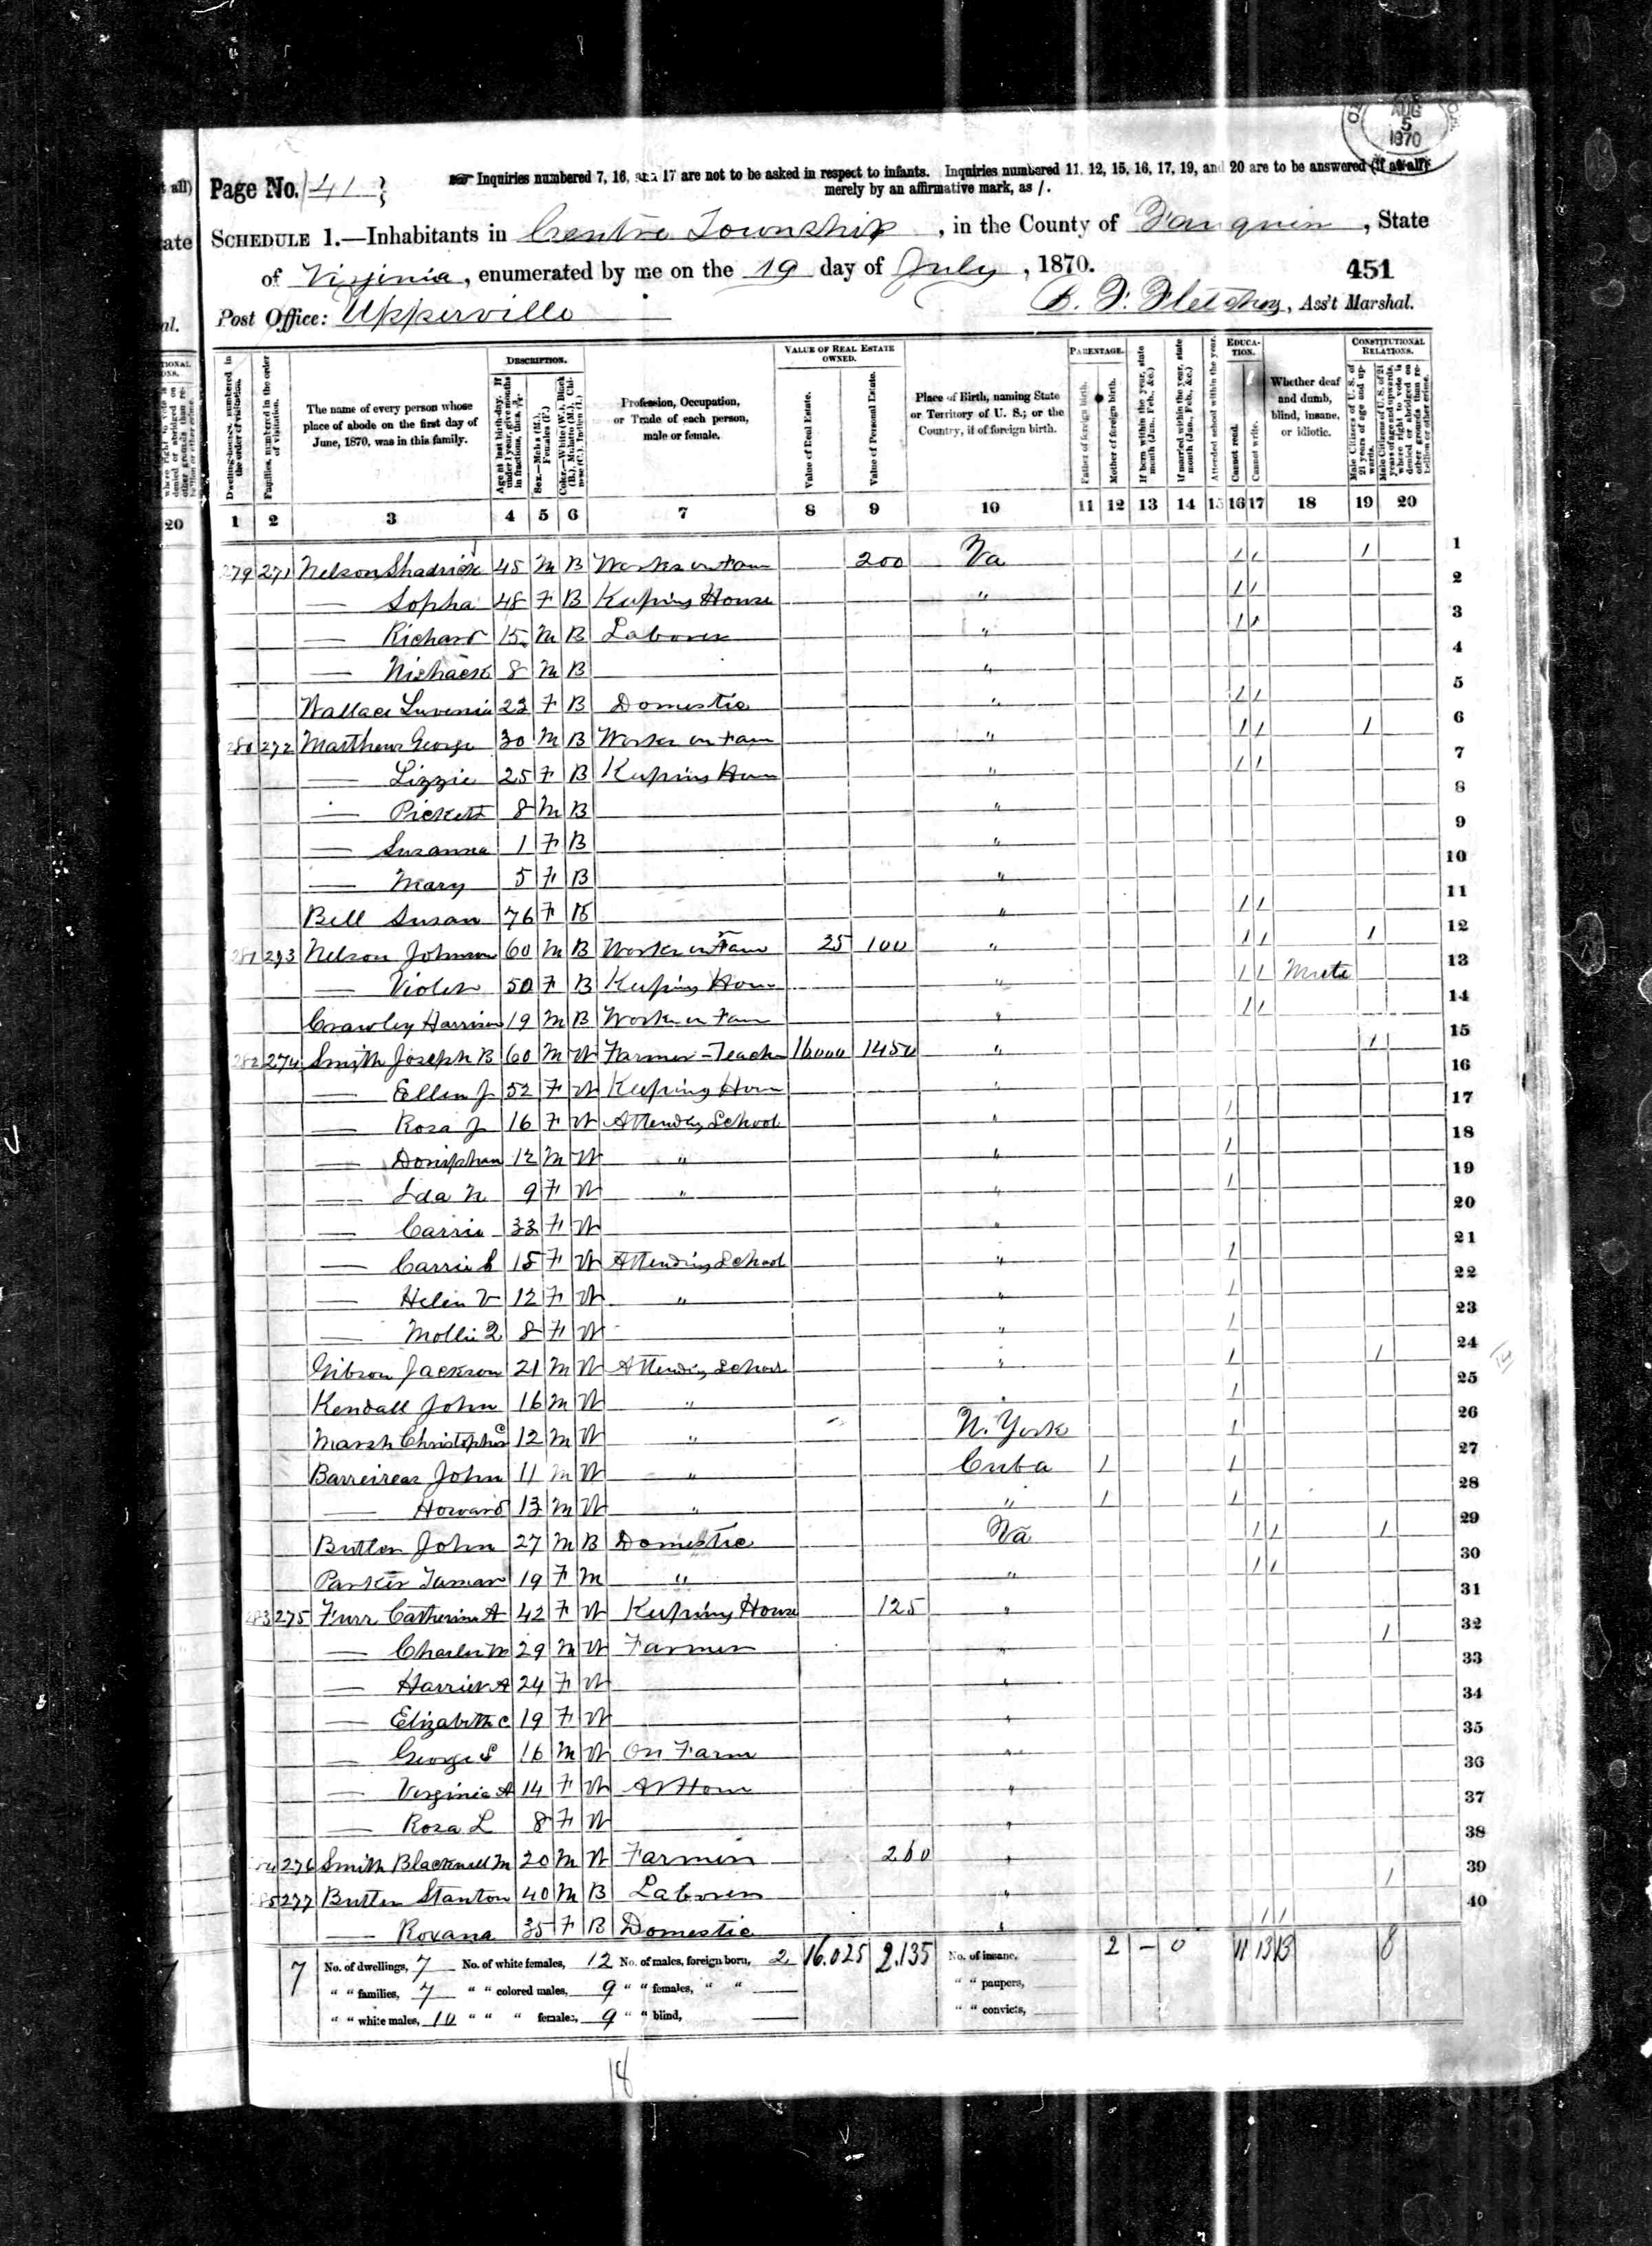 AUG
5
1870
Page No. 41
Inquiries numbered 7, 16, and 17 are not to be asked in respect to infants. Inquiries numbered 11, 12, 15, 16, 17, 19, and 20 are to be answered (if at all)
merely by an affirmative mark, as /.
SCHEDULE 1.—Inhabitants in Centre Township, in the County of Fauquier, State
of Virginia, enumerated by me on the 19 day of July, 1870.
451
Post Office: Upperville
B. F. Fletcher, Ass't Marshal.
DESCRIPTION. VALUE OF REAL ESTATE OWNED. PARENTAGE. EDUCATION. CONSTITUTIONAL RELATIONS.
Dwelling-houses, numbered in the order of visitation.
Families, numbered in the order of visitation.
The name of every person whose place of abode on the first day of June, 1870, was in this family.
Age at last birth-day. If under 1 year, give months in fractions, thus, 3/12.
Sex.—Males (M.), Females (F.)
Color.—White (W.), Black (B.), Mulatto (M.), Chinese (C.), Indian (I.)
Profession, Occupation, or Trade of each person, male or female.
Value of Real Estate.
Value of Personal Estate.
Place of Birth, naming State or Territory of U. S.; or the Country, if of foreign birth.
Father of foreign birth.
Mother of foreign birth.
If born within the year, state month (Jan., Feb., &c.)
If married within the year, state month (Jan., Feb., &c.)
Attended school within the year.
Cannot read.
Cannot write.
Whether deaf and dumb, blind, insane, or idiotic.
Male Citizens of U. S. of 21 years of age and upwards.
Male Citizens of U. S. of 21 years of age and upwards, where right to vote is denied or abridged on other grounds than rebellion or other crime.
1 2 3 4 5 6 7 8 9 10 11 12 13 14 15 16 17 18 19 20
279 271 Nelson Shadrick 45 M B Works on Farm 200 Va / / / 1
— Sopha 48 F B Keeping House " / / 2
— Richard 15 M B Laborer " / / 3
— 8 M B " 4
Wallace Luvenia 23 F B Domestic " / / 5
280 272 Matthews George 30 M B Works on Farm " / / / 6
— Lizzie 25 F B Keeping House " / / 7
— Pickett 8 M B " 8
— Susanna 1 F B " 9
— Mary 5 F B " 10
Bell Susan 76 F B " / / 11
281 273 Nelson Johnson 60 M B Works on Farm 25 100 " / / / 12
— Violet 50 F B Keeping House " / / Mute 13
Crawley Harrison 19 M B Works on Farm " / / 14
282 274 Smith Joseph B 60 M W Farmer - Teacher 16000 1450 " / 15
— Ellen J 52 F W Keeping House " 16
— Rosa J 16 F W Attending School " / 17
— Doniphan 12 M W " " / 18
— Ida N 9 F W " " / 19
— Carrie 33 F W " 20
— Carrie S 15 F W Attending School " / 21
— Helen V 12 F W " " / 22
— Mollie Q 8 F W " / 23
Gibson Jackson 21 M W Attending School " / / 24
Kendall John 16 M W " " / 25
Marsh Christopher C 12 M W " N. York / 26
Barreiras John 11 M W " Cuba / / 27
— Howard 13 M W " " / / 28
Butler John 27 M B Domestic Va / / / 29
Parker Tamar 19 F M " " / / 30
283 275 Furr Catherine A 42 F W Keeping House 125 " 31
— Charles M 29 M W Farmer " / 32
— Harriet A 24 F W " 33
— Elizabeth C 19 F W " 34
— George S 16 M W On Farm " 35
— Virginia A 14 F W At Home " 36
— Rosa L 8 F W " 37
276 Smith Blackwell M 20 M W Farmer 260 " 38
277 Butler Stanton 40 M B Laborer " / 39
— Roxana 35 F B Domestic " / / 40
7 No. of dwellings, 7 No. of white females, 12 No. of males, foreign born, 2 16.025 2.135 No. of insane, 2 – 0 11 13 13 8
" " families, 7 " " colored males, 9 " " females, " " — " " paupers,
" " white males, 10 " " " females, 9 " " blind, — " " convicts,
18